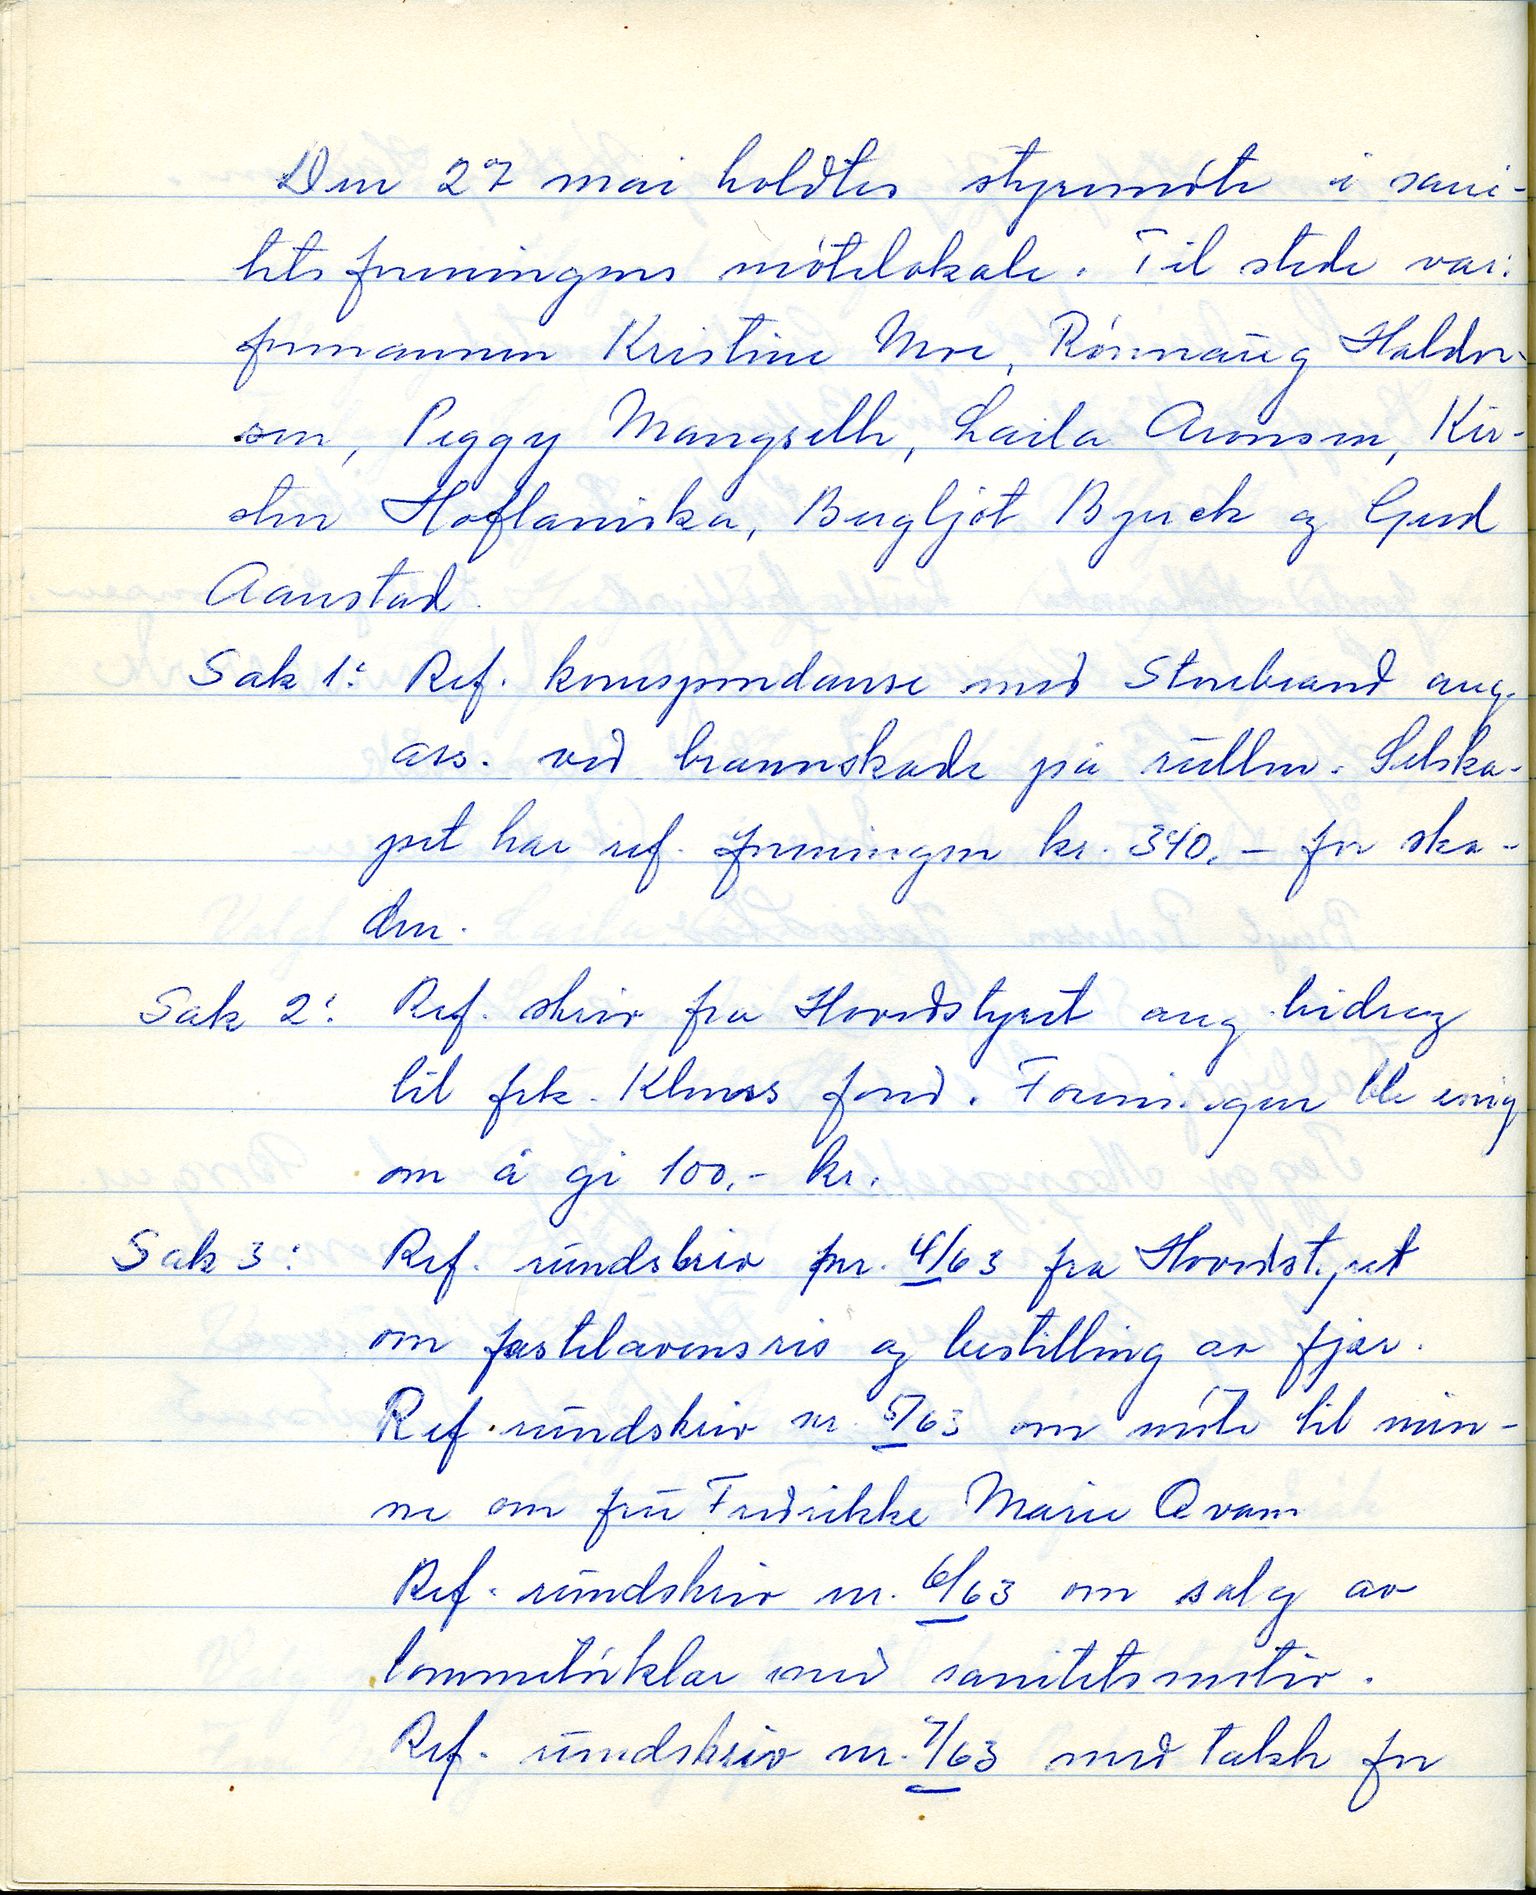 Den 27 mai holdtes styremöte i sani-
tetsforeningens mötelokale. Til stede var:
formannen Kristine Moe, Rönnaug Haldor-
sen, Peggy Mangseth, Laila Aronsen, Kir-
sten Hoflaniska, Bergljot Bjerck og Gerd
Aanstad.
Sak 1: Ref. korrespondanse med Storebrand ang.
ass. ved brannskade på rullen. Selska-
pet har ref. foreningen kr. 340.- for ska-
den.
Sak 2: Ref. skriv fra Hovedstyret ang. bidrag
til frk. Klenss fond. Foreningen ble enig
om å gi 100,- kr.
Sak 3: Ref. rundskriv nr. 4/63 fra Hovedstyret
om fastelavensris og bestilling av fjær.
Ref. rundskriv nr. 5/63 om möte til min-
ne om fru Fredrikke Marie Qvam
Ref. rundskriv nr. 6/63 om salg av
lommetörklær med sanitetsmotiv.
Ref. rundskriv nr. 7/63 med takk for